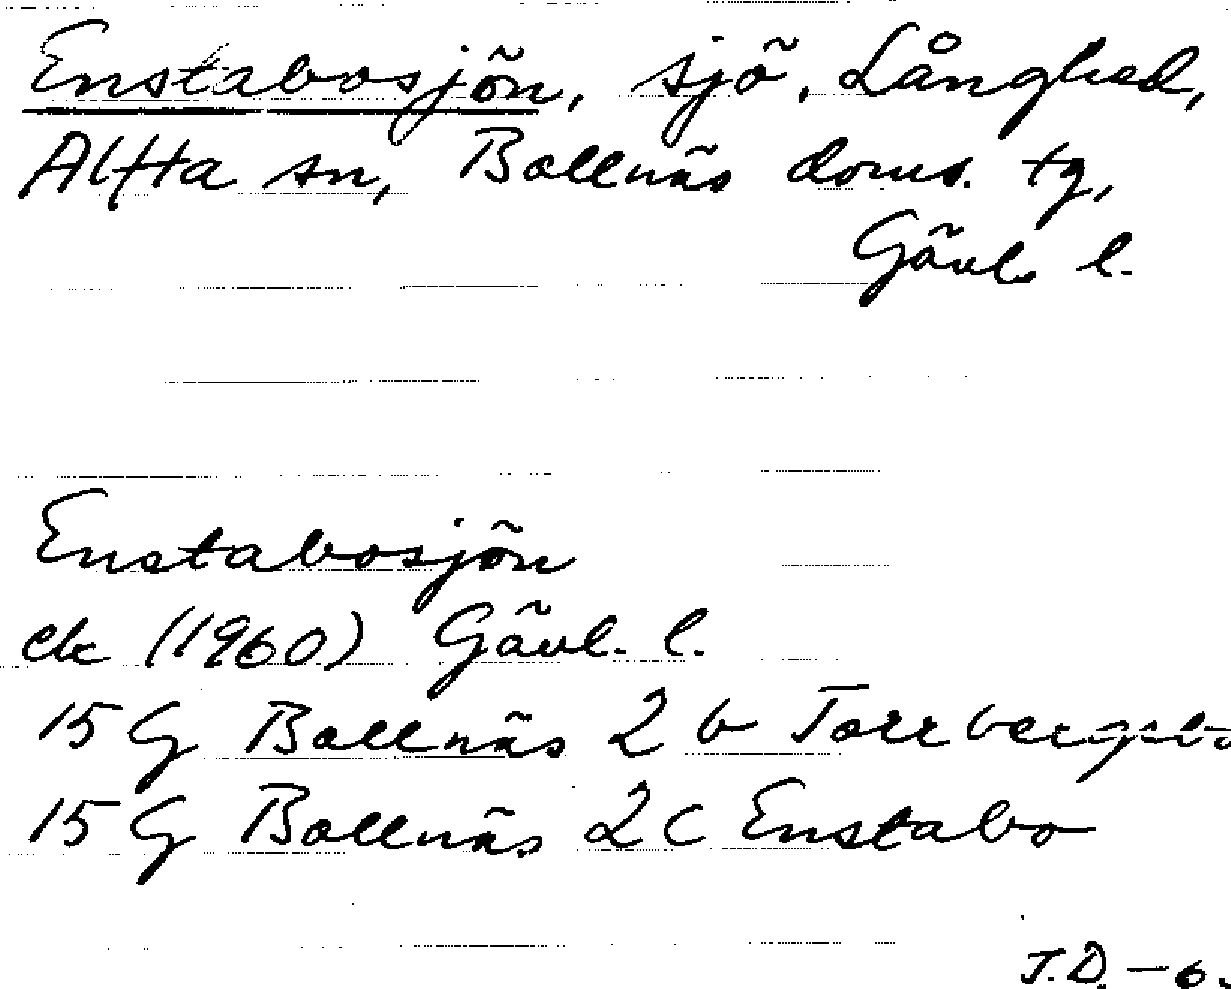 Enstabosjön, sjö, Långhed,
Alfta sn, Bollnäs doms. tg,
Gävle l.
Enstabosjön
ek (1960) Gävl. l.
15 G Bollnäs 2 b Torrbergsbo
15 G Bollnäs 2 c Enstabo
J.D. - 6.